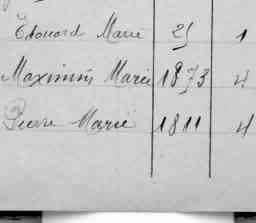 Édouard Marie 25 1
Maximin Marie 1873 4
Pierre Marie 1811 4